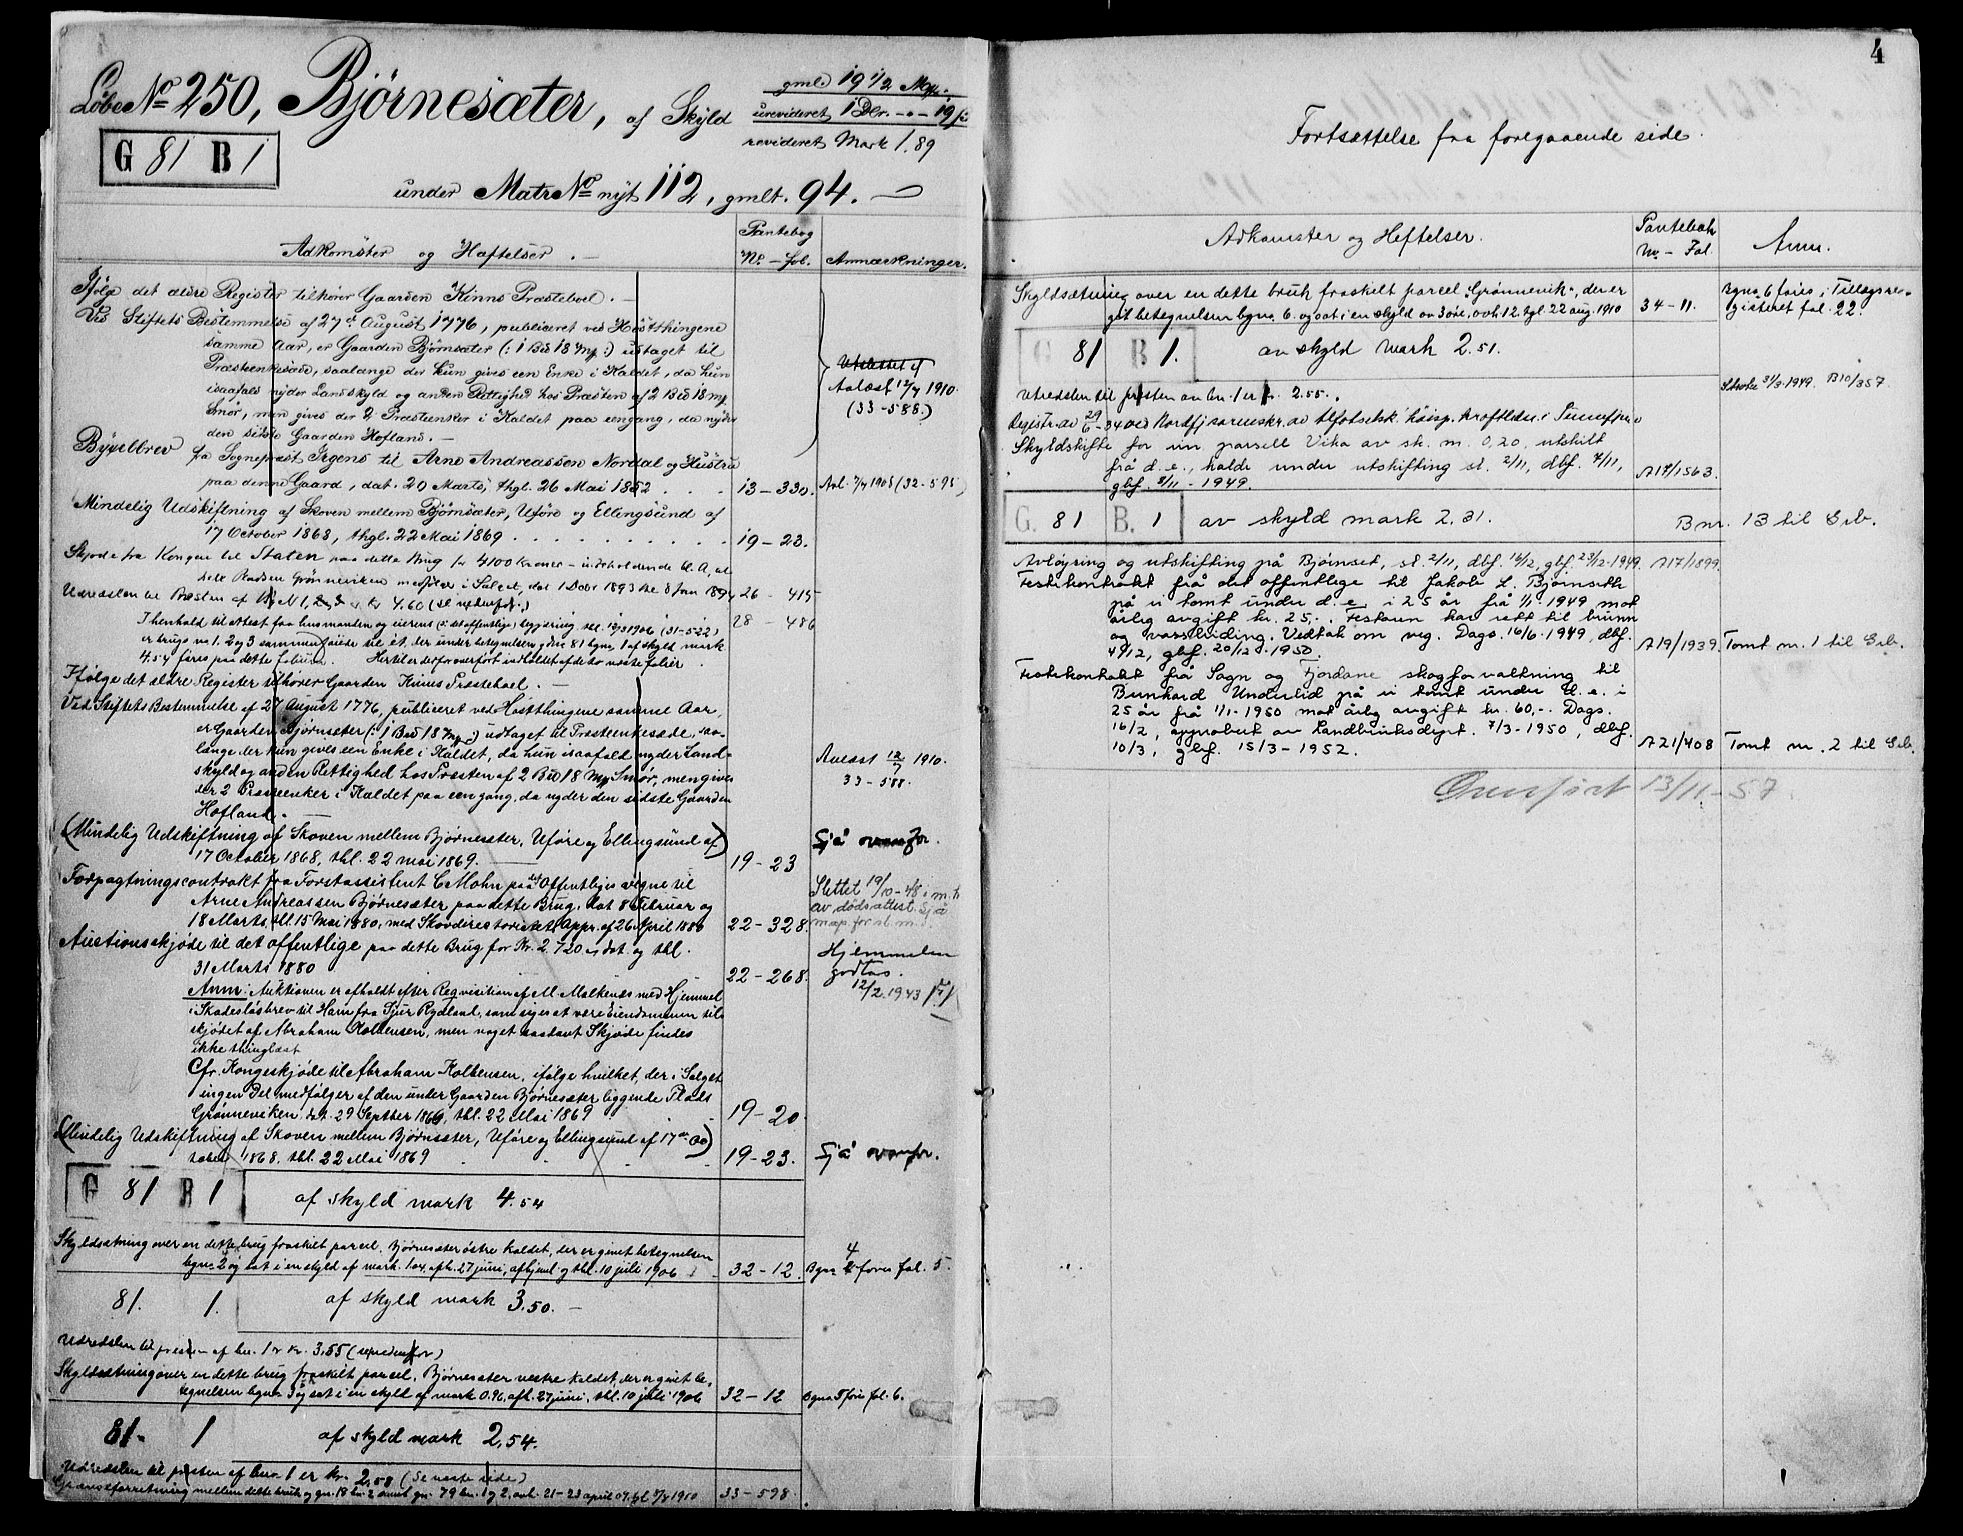 Løbe No 250, Bjørnesæter, af Skyld
gmlt 19 1/2 Mk.
urevideret 1 Dlr. - " - 19 ß
revideret Mark 1.89
G 81 B 1
under Matr No nyt 112, gmlt. 94.
Adkomster og Hæftelser.
Pantebog
No. - fol.
Anmærkninger.
Ifølge det ældre Register tilhører Gaarden Kinns Præstebol.
Ved Stiftets Bestemmelse af 27de August 1776, publiceret ved Høstthingene
samme Aar, er Gaarden Bjørnsæter (: 1 Bud 18 Mp :) udtaget til
Præsteenkesæde, saalænge der kun gives een Enke i Kaldet, da hun
isaafald nyder Landskyld og anden Rettighed hos Præsten af 2 Bud 18 Mp
Smør, men gives der 2 Præsteenker i Kaldet paa eengang, da nyder
den sidste Gaarden Hofland.
Aflæst 12/7 1910.
(33-588.)
Byxelbrev fra Sognepræst Irgens til Arne Andreassen Nordal og Hustru
paa denne Gaard, dat. 20 Marts, thgl. 26 Mai 1852 . . . 13-330. Avl. 7/4 1908 (32-595)
Mindelig Udskiftning af Skoven mellem Bjørnsæter, Uføre og Ellingsund af
17 October 1868, thgl. 22 Mai 1869 . . . . . . . 19-23.
Skjøde fra Kongen til Staten paa dette Brug for 4100 Kroner - indeholdende bl. A, at
hele Pladsen Grønneviken medfølger i Salget, dat 1 Decbr 1893 thl 8 Jan 1894 26 - 415
Udredslen til Præsten af B. No 1, 2, 3 er Kr 4.60 (se nedenfor.)
28 - 486
I henhold til Attest fra lensmanden og eierens (: det offentlige) begjæring thl. 12/3 1906 (31-522)
er brugs no 1. 2 og 3 sammenføiede til et, der under betegnelsen gno 81 bgno 1 af skyld mark
4.54 føres paa dette folium. Hertil er derfor overført indholdet af de to næste folier.
Ifølge det ældre Register tilhører Gaarden Kinns Præsteboel.
Ved Stiftets Bestemmelse af 27 August 1776, publiceret ved Høstthingene samme Aar,
er Gaarden Bjørnsæter (: 1 Bud 18 Mp :) udtaget til Præsteenkesæde, saa-
længe der kun gives een Enke i Kaldet, da hun isaafald nyder Land-
skyld og anden Rettighed hos Præsten af 2 Bud 18 Mp Smør, men gives
der 2 Præsteenker i Kaldet paa eengang, da nyder den sidste Gaarden
Hofland.
Avlæst 12/7 1910.
33-588.
(Mindelig Udskiftning af Skoven mellem Bjørnesæter, Uføre og Ellingsund af)
17 October 1868, thl. 22 mai 1869. 19-23 Sjå ovanfor.
Forpagtningscontrakt fra Forstassistent C. Mohn paa det Offentliges vegne til
Arne Andreassen Bjørnesæter paa dette Brug, dat 8 Februar og
18 Marts, thl. 15 Mai 1880, med Skovdirectoratets Appr. af 26 April 1880 22-328.
Slettet 19/10-48 i m. h.
av dødsattest. Sjå
map for st. m. s.
Auctionsskjøde til det offentlige paa dette Brug for Kr. 2 720, dat. og thl.
31 Marts 1880 22-268.
Hjemmelen
godtas.
12/2 1943
Anm: Auktionen er afholdt efter Reqvisition af M. Malkenes med Hjemmel
i Skadesløsbrev til Ham fra Sjur Rydland, som siges at være Eiendommen til-
skjødet af Abraham Kolbensen, men noget saadant Skjøde findes
ikke thinglæst
Cfr. Kongeskjøde til Abraham Kolbensen, ifølge hvilket, der i Salget
ingen Del medfølger af den under Gaarden Bjørnesæter liggende Plads
Grønneviken, dat. 29 Septber 1868, thl. 22 Mai 1869 19-20.
(Mindelig Udskiftning af Skoven mellem Bjørnsæter, Uføre og Ellingsund af 17de Oc)
tober 1868. thl. 22 Mai 1869 19-23. Sjå ovanfor.
G 81 B 1 af skyld mark 4.54
Skyldsætning over en dette brug fraskilt parcel, Bjørnesæter østre kaldet, der er givet betegnelsen
bgno 2 og sat i en skyld af mark. 1.04, afh. 27 juni, afhjeml. og thl. 10 juli 1906 32-12. Bgno 4 føres fol. 5.
81. 1. af skyld mark 3.50.
Udredslen til præsten af bn. 1 er Kr. 3,55 (se nedenfor)
Skyldsætning over en dette brug fraskilt parcel, Bjørnesæter vestre kaldet, der er givet be-
tegnelsen bgno 3 og sat i en skyld af mark 0.96, afh. 27 juni, thl. 10 juli 1906 32-12 Bgno 5 føres fol. 6.
81. 1 af skyld mark 2,54.
Udredslen til præsten af bno 1 er kr. 2,58 (Se næste side)
Grænseforretning mellem dette bruk og gn. 78 bn. 2 samt gn. 79 bn. 1 og 2, avh. 21-23 april 09, tgl. 5/4 1910 33-598.
4
Fortsættelse fra foregaaende side.
Adkomster og Heftelser.
Pantebok
No. - Fol.
Anm.
Skyldsætning over en dette bruk fraskilt parcel, "Grønnevik", der er
git betegnelsen bgno. 6 og sat i en skyld av 3 øre, avh. 12. tgl. 22 aug. 1910 34-11.
Bgno. 6 føres i Tillægsre-
gisteret fol. 22.
G 81 B 1. av skyld mark 2.51.
Utredslen til presten av bn. 1 er kr. 2.55.
Slettet 31/3-1949. B10/357.
Registr. av 29/6-34 ved Nordfj. sorenskr. av elfotselsk. håisp. kraftledn. i Sunnfjord
Skyldskifte for ein parsell Vika av sk. m. 0,20, utskilt
frå d. e., halde under utskifting sl. 2/11, dbf. 7/11,
gbf. 8/11-1949. A17/1563.
G. 81 B. 1 av skyld mark 2.31. Bnr. 13 til Grb.
Avløysing og utskifting på Bjørnset, sl. 2/11, dbf. 16/12, gbf. 23/12-1949. A17/1899.
Festekontrakt frå det offentlege til Jakob L. Bjørnseth
på ei tomt under d. e. i 25 år frå 1/1-1949 mot
årleg avgift kr. 25,-. Festaren har rett til brunn
og vassleidning. Vedtak om veg. Dags. 16/6-1949, dbf.
4/12, gbf. 20/12-1950. A19/1939. Tomt nr. 1 til Grb.
Festekontrakt frå Sogn og Fjordane skogforvaltning til
Bernhard Underlid på ei tomt under d. e. i
25 år frå 1/1-1950 mot årleg avgift kr. 60,-. Dags.
16/2, approbert av Landbruksdept. 7/3-1950, dbf.
10/3, gbf. 15/3-1952. A21/408 Tomt nr. 2 til Grb.
Overført 13/11-57.